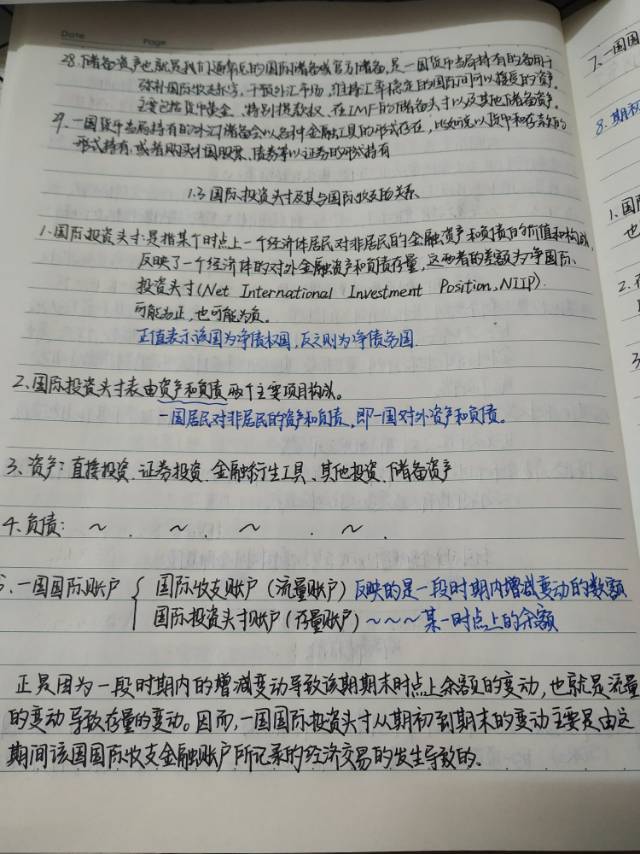 Date Page
28.储备资产也就是我们通常说的国际储备或官方储备,是一国货币当局持有的备用于
弥补国际收支赤字,干预外汇市场,维持汇率稳定的国际间可以接受的资产。
主要包括货币黄金、特别提款权、在IMF的储备头寸以及其他储备资产。
29.一国货币当局持有的外汇储备会以各种金融工具的形式存在,比如说以货币和存款的
形式持有,或者购买他国股票、债券等以证券的形式持有
1.3 国际投资头寸及其与国际收支的关系
1.国际投资头寸:是指某个时点上一个经济体居民对非居民的金融资产和负债的价值和构成,
反映了一个经济体的对外金融资产和负债存量,这两者的差额为净国际
投资头寸(Net International Investment Position,NIIP).
可能为正,也可能为负。
正值表示该国为净债权国,反之则为净债务国.
2.国际投资头寸表由资产和负债两个主要项目构成。
一国居民对非居民的资产和负债,即一国对外资产和负债。
3、资产:直接投资、证券投资、金融衍生工具、其他投资、储备资产
4、负债: ~ 、 ~ 、 ~ 、 ~ .
5、一国国际账户 { 国际收支账户(流量账户)反映的是一段时期内增减变动的数额
国际投资头寸账户(存量账户)~~~某一时点上的余额
正是因为一段时期内的增减变动导致该期期末时点上余额的变动,也就是流量
的变动导致存量的变动。因而,一国国际投资头寸从期初到期末的变动主要是由这
期间该国国际收支金融账户所记录的经济交易的发生导致的.
7、一国国
8.期初
1、国
也
2.
3